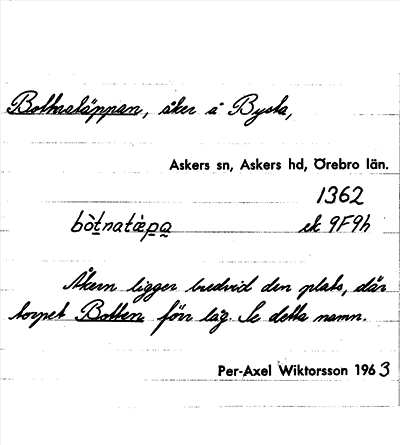 Bottnatäppan, åker å Bysta,
Askers sn, Askers hd, Örebro län.
1362
bòt̠natäp̠a̰ ek 9F9h
Åkern ligger bredvid den plats, där
torpet Botten förr låg. Se detta namn.
Per-Axel Wiktorsson 1963